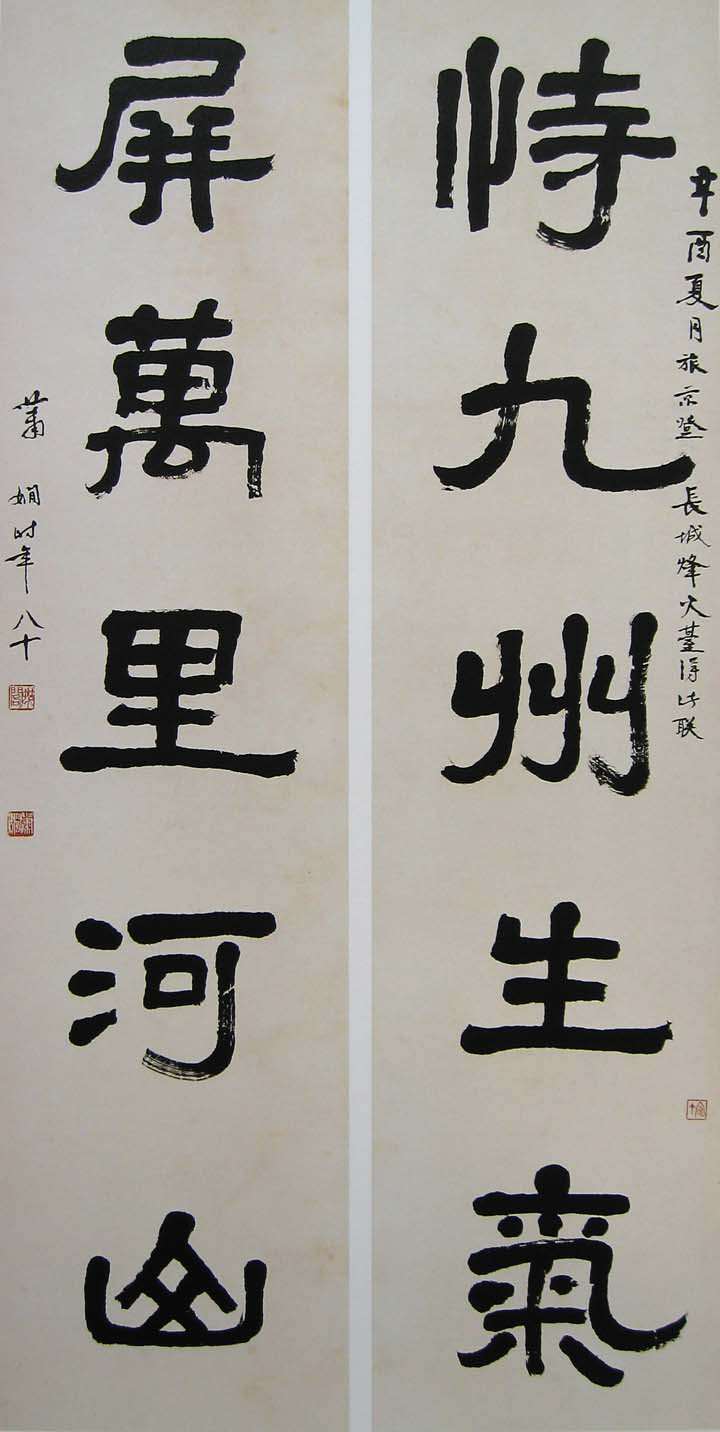 恃九州生氣
辛酉夏月旅京登長城烽火臺得此联
屏萬里河山
蕭嫻时年八十